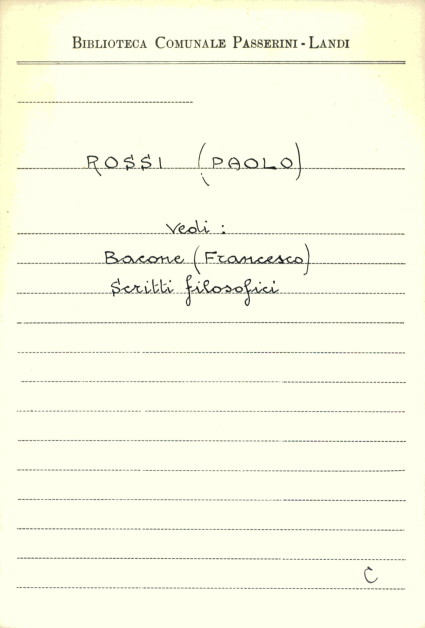 BIBLIOTECA COMUNALE PASSERINI - LANDI
ROSSI (PAOLO)
Vedi :
Bacone (Francesco)
Scritti filosofici
C